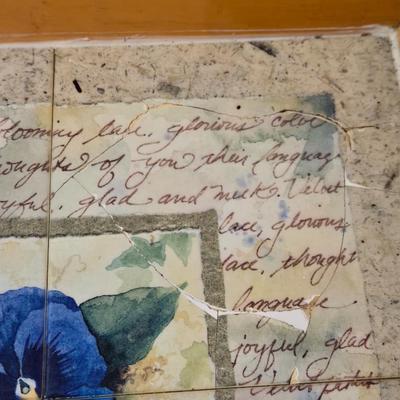 blooming late, glorious color
thoughts of you their language
joyful, glad and meek. Velvet
lace, glorious
lace, thought
language
joyful, glad
Velvet